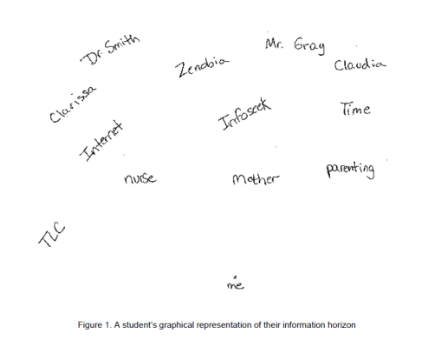 Dr. Smith
Mr. Gray
Zenobia
Claudia
Clarissa
Infoseek
Time
Internet
nurse
Mother
parenting
TLC
me
Figure 1. A student's graphical representation of their information horizon